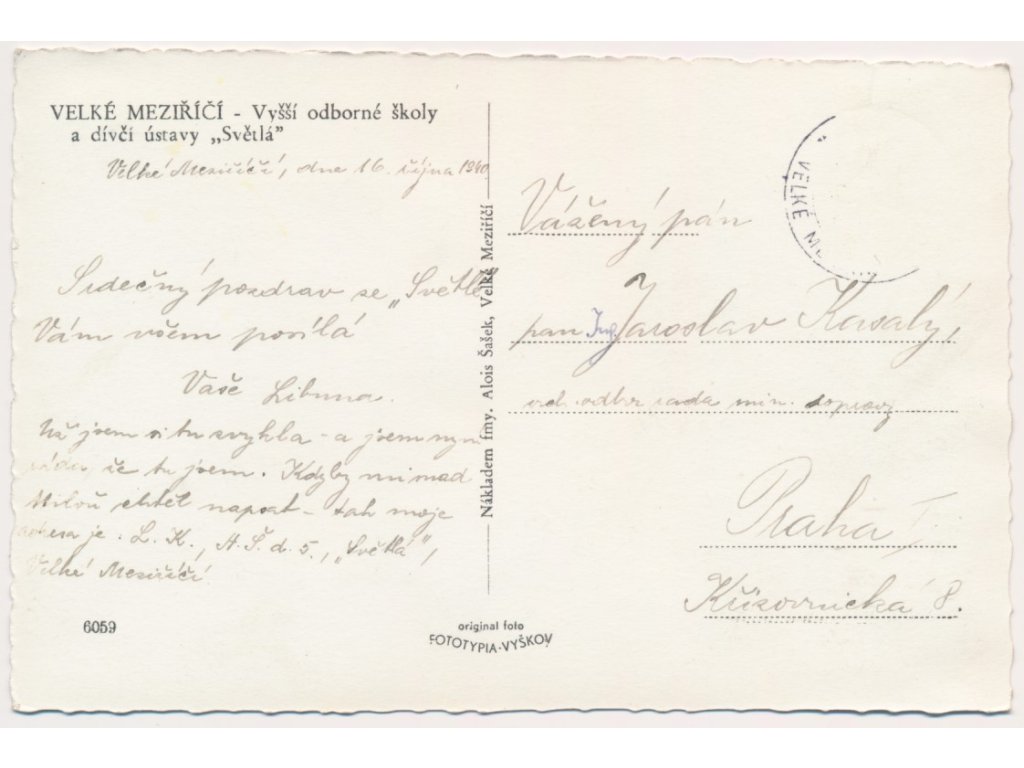 VELKÉ MEZIŘÍČÍ - Vyšší odborné školy
a dívčí ústavy „Světlá”
Velké Meziříčí, dne 16. října 1940
Srdečný pozdrav se „Světlé
Vám všem posílá
Vaše Libuna.
Už jsem si tu zvykla - a jsem nyní
ráda, že tu jsem. Kdyby mi snad
Miloň chtěl napsat - tak moje
adresa je: L. K., A.Š.d.5., „Světlá”,
Velké Meziříčí.
6059
Nákladem fmy. Alois Šašek, Velké Meziříčí
original foto
FOTOTYPIA-VYŠKOV
VELKÉ M
Vážený pán
pan Ing Jaroslav Kasalý,
vrch. odbor. rada min. dopravy
Praha I
Křižovnická 8.